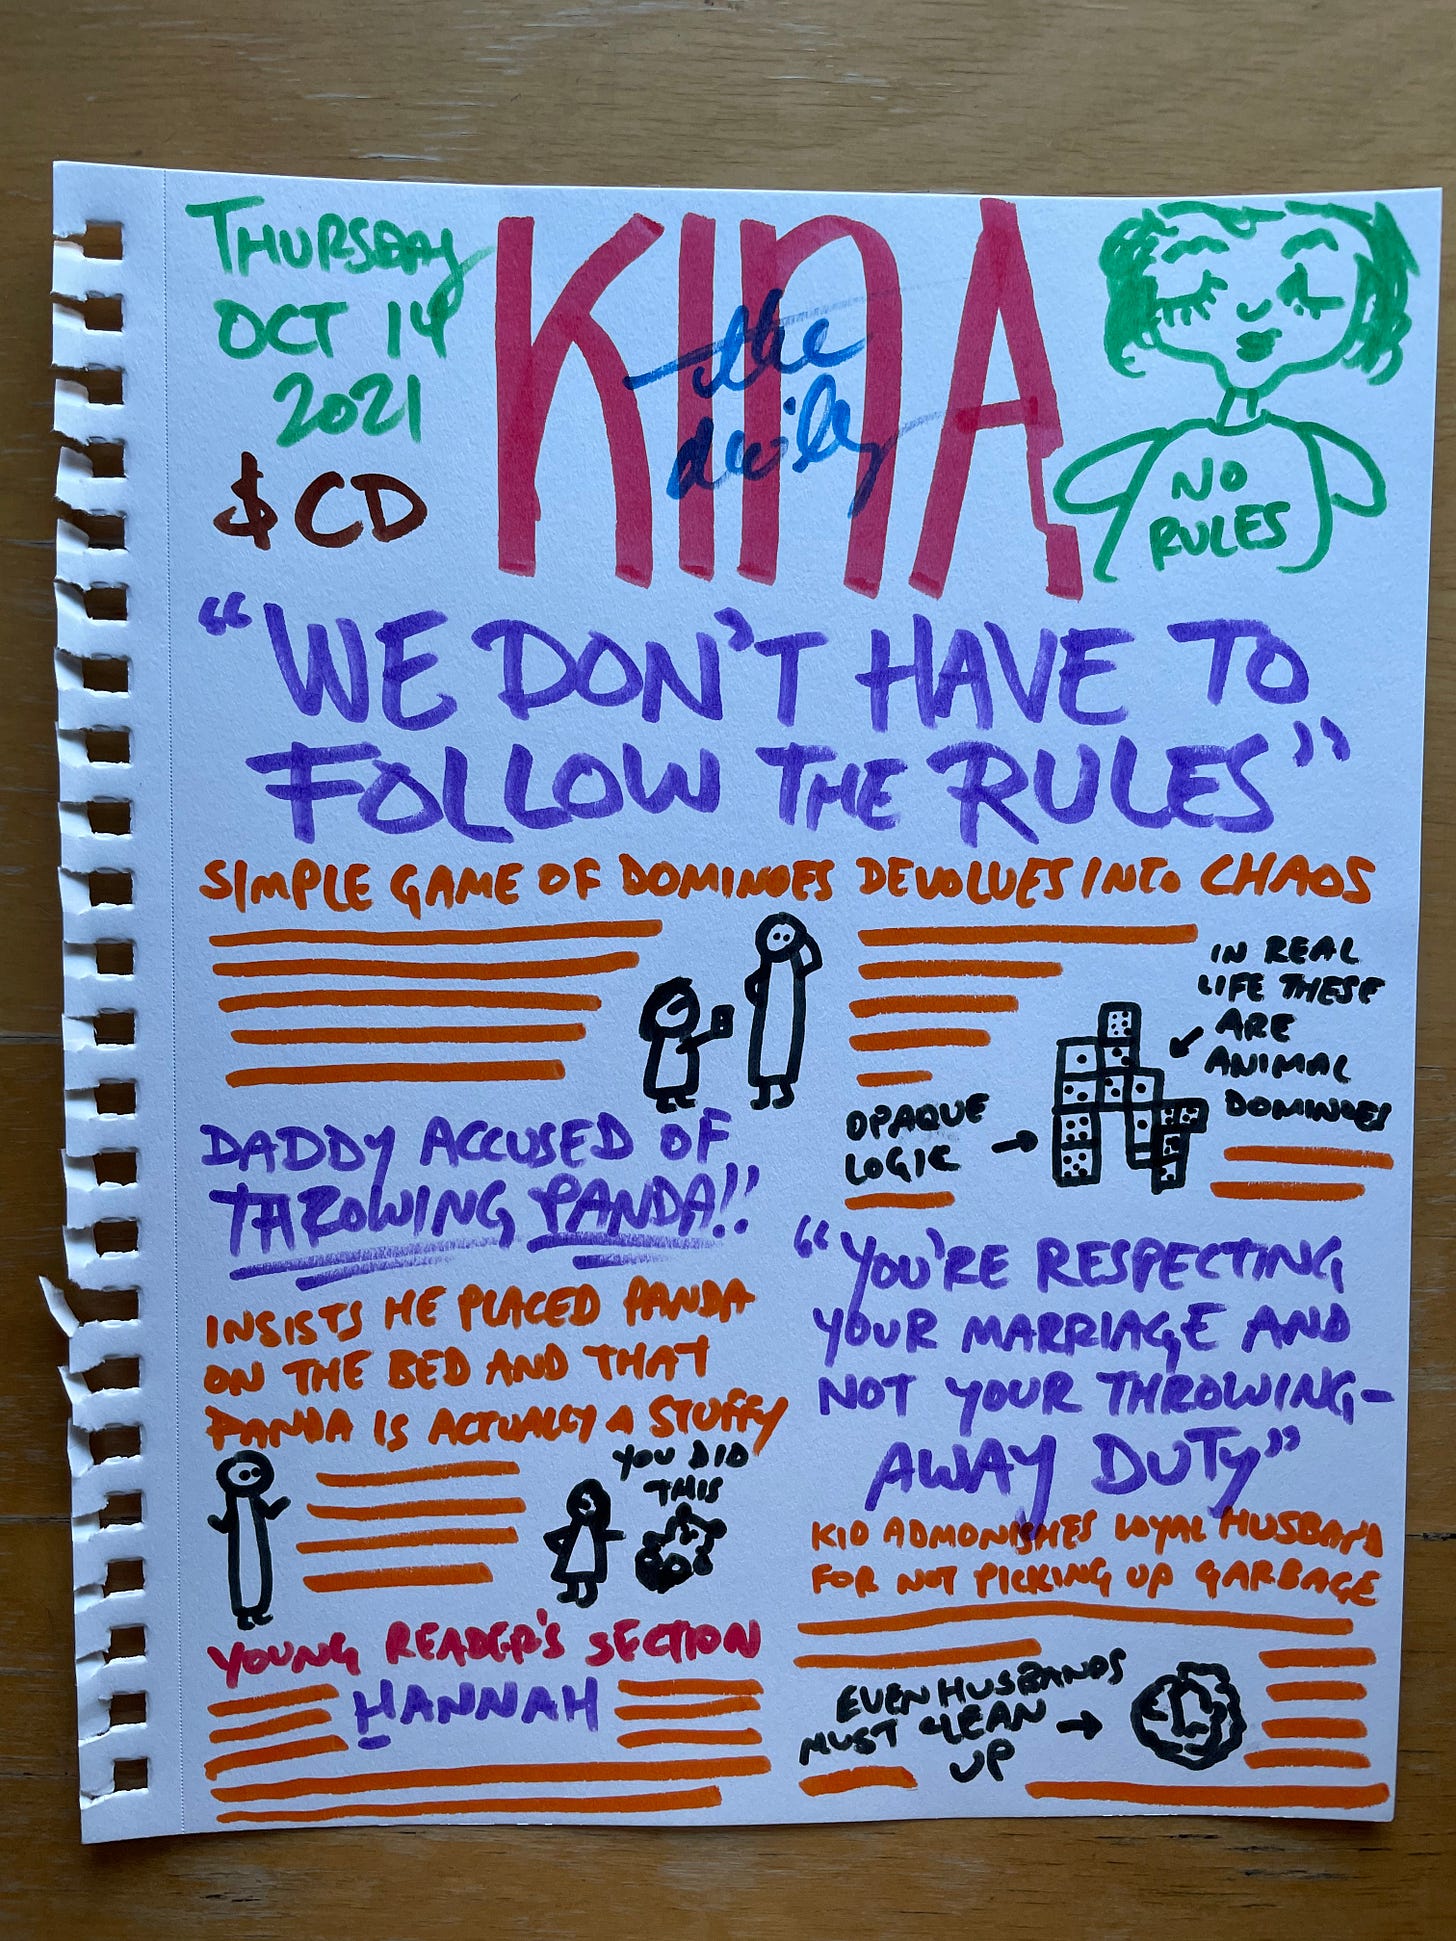 THURSDAY
OCT 14
2021
$CD
KINA
the
daily
NO
RULES
"WE DON'T HAVE TO
FOLLOW THE RULES"
SIMPLE GAME OF DOMINOES DEVOLVES INTO CHAOS
IN REAL
LIFE THESE
ARE
ANIMAL
DOMINOES
OPAQUE
LOGIC
DADDY ACCUSED OF
THROWING PANDA!!
INSISTS HE PLACED PANDA
ON THE BED AND THAT
PANDA IS ACTUALLY A STUFFY
YOU DID
THIS
"YOU'RE RESPECTING
YOUR MARRIAGE AND
NOT YOUR THROWING-
AWAY DUTY"
KID ADMONISHES LOYAL HUSBAND
FOR NOT PICKING UP GARBAGE
EVEN HUSBANDS
MUST CLEAN
UP
YOUNG READER'S SECTION
HANNAH